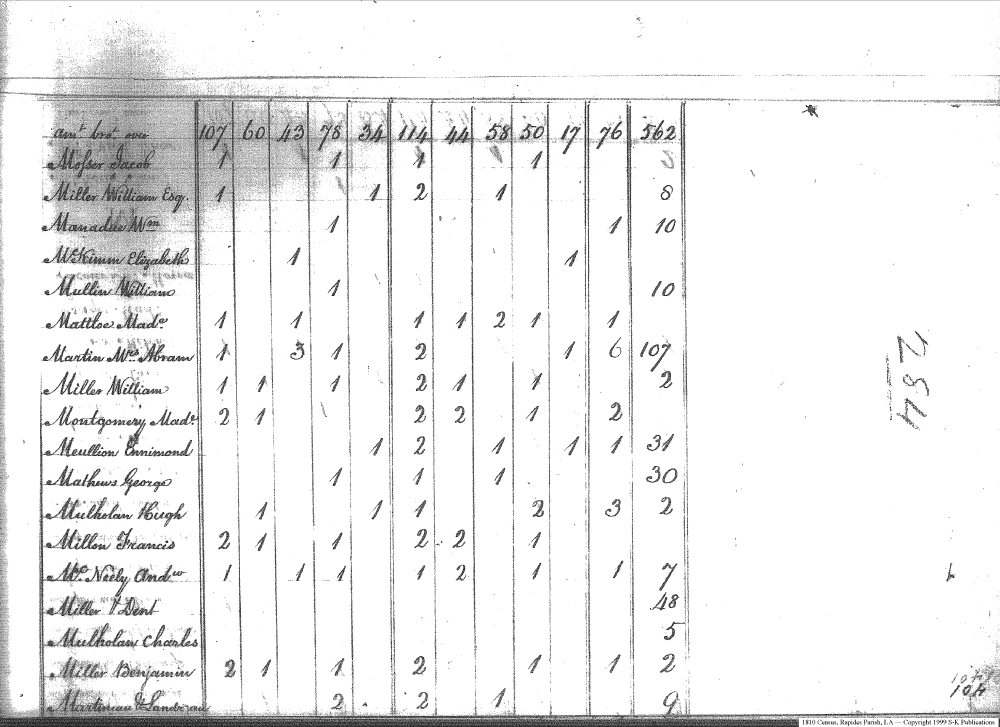 amt brot over 107 60 43 78 34 114 44 58 50 17 76 562
Mosser Jacob 1 1 1 1
Miller William Esq. 1 1 2 1 8
Manadue Wm 1 1 10
McKimm Elizabeth 1 1
Mullin William 1 10
Mattloe Made 1 1 1 1 2 1 1
Martin Mrs Abram 1 3 1 2 1 6 107
Miller William 1 1 1 2 1 1 2
Montgomery Made 2 1 2 2 1 2
Meullion Ennimond 1 2 1 1 1 31
Mathews George 1 1 1 30
Mulholan Hugh 1 1 1 2 3 2
Millon Francis 2 1 1 2 2 1
Mc Neely Andw 1 1 1 1 2 1 1 7
Miller & Dent 48
Mulholan Charles 5
Miller Benjamin 2 1 1 2 1 1 2
Martineau & Landreau 2 2 1 9
284
401
401
1810 Census, Rapides Parish, LA — Copyright 1999 S-K Publications